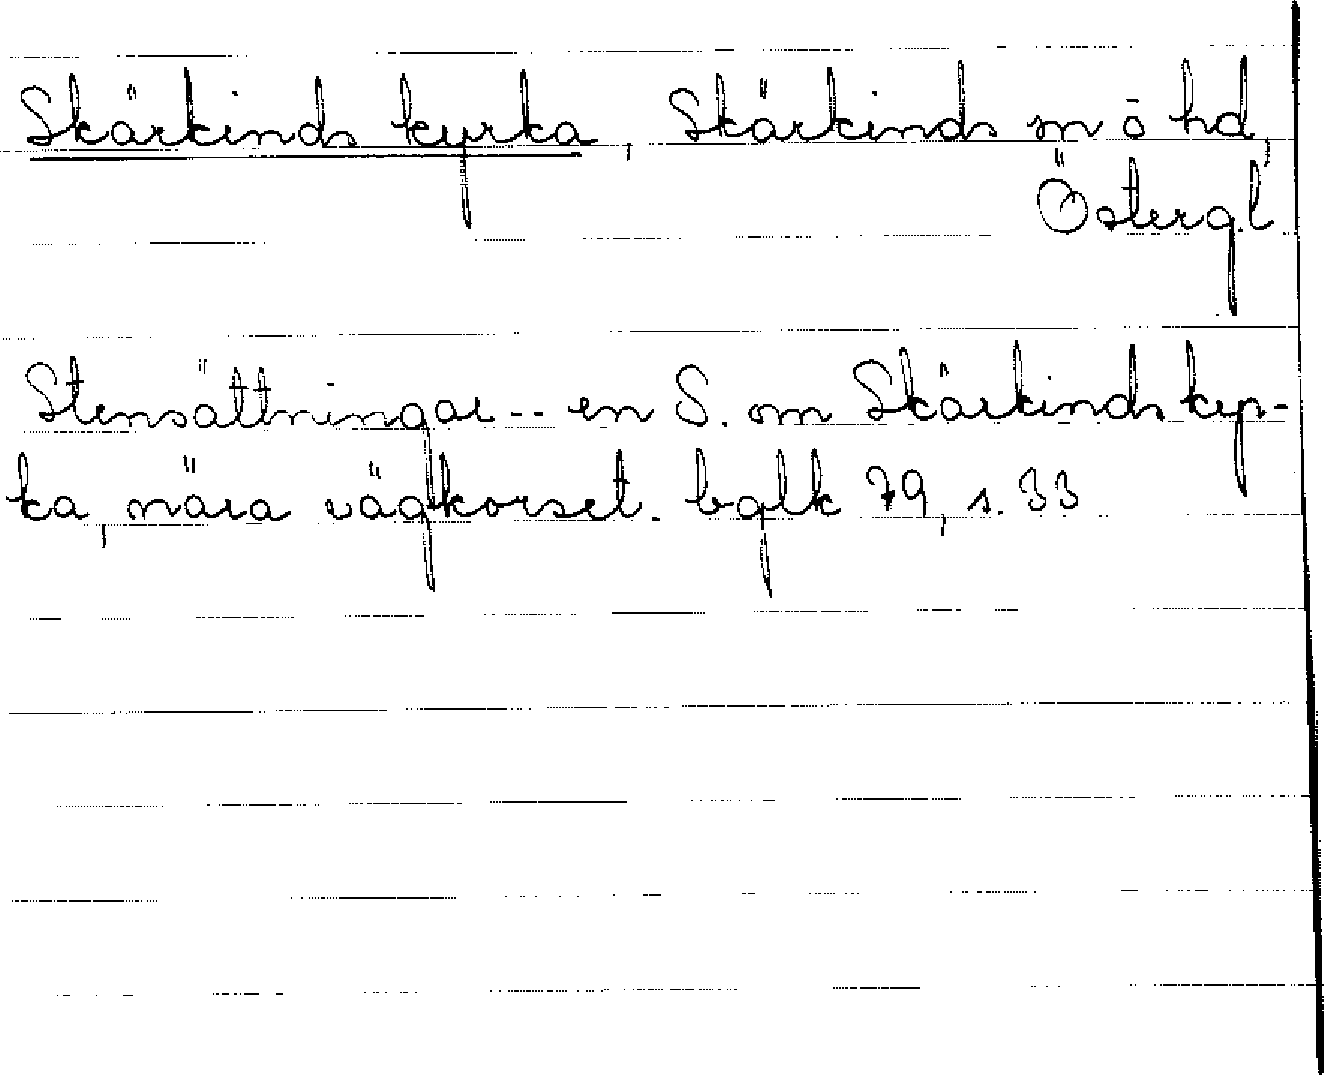 Skärkinds kyrka, Skärkinds sn ō hd,
Östergl
Stensättningar -- en S. om Skärkinds kyr-
ka, nära vägkorset. bglk 79, s. 33